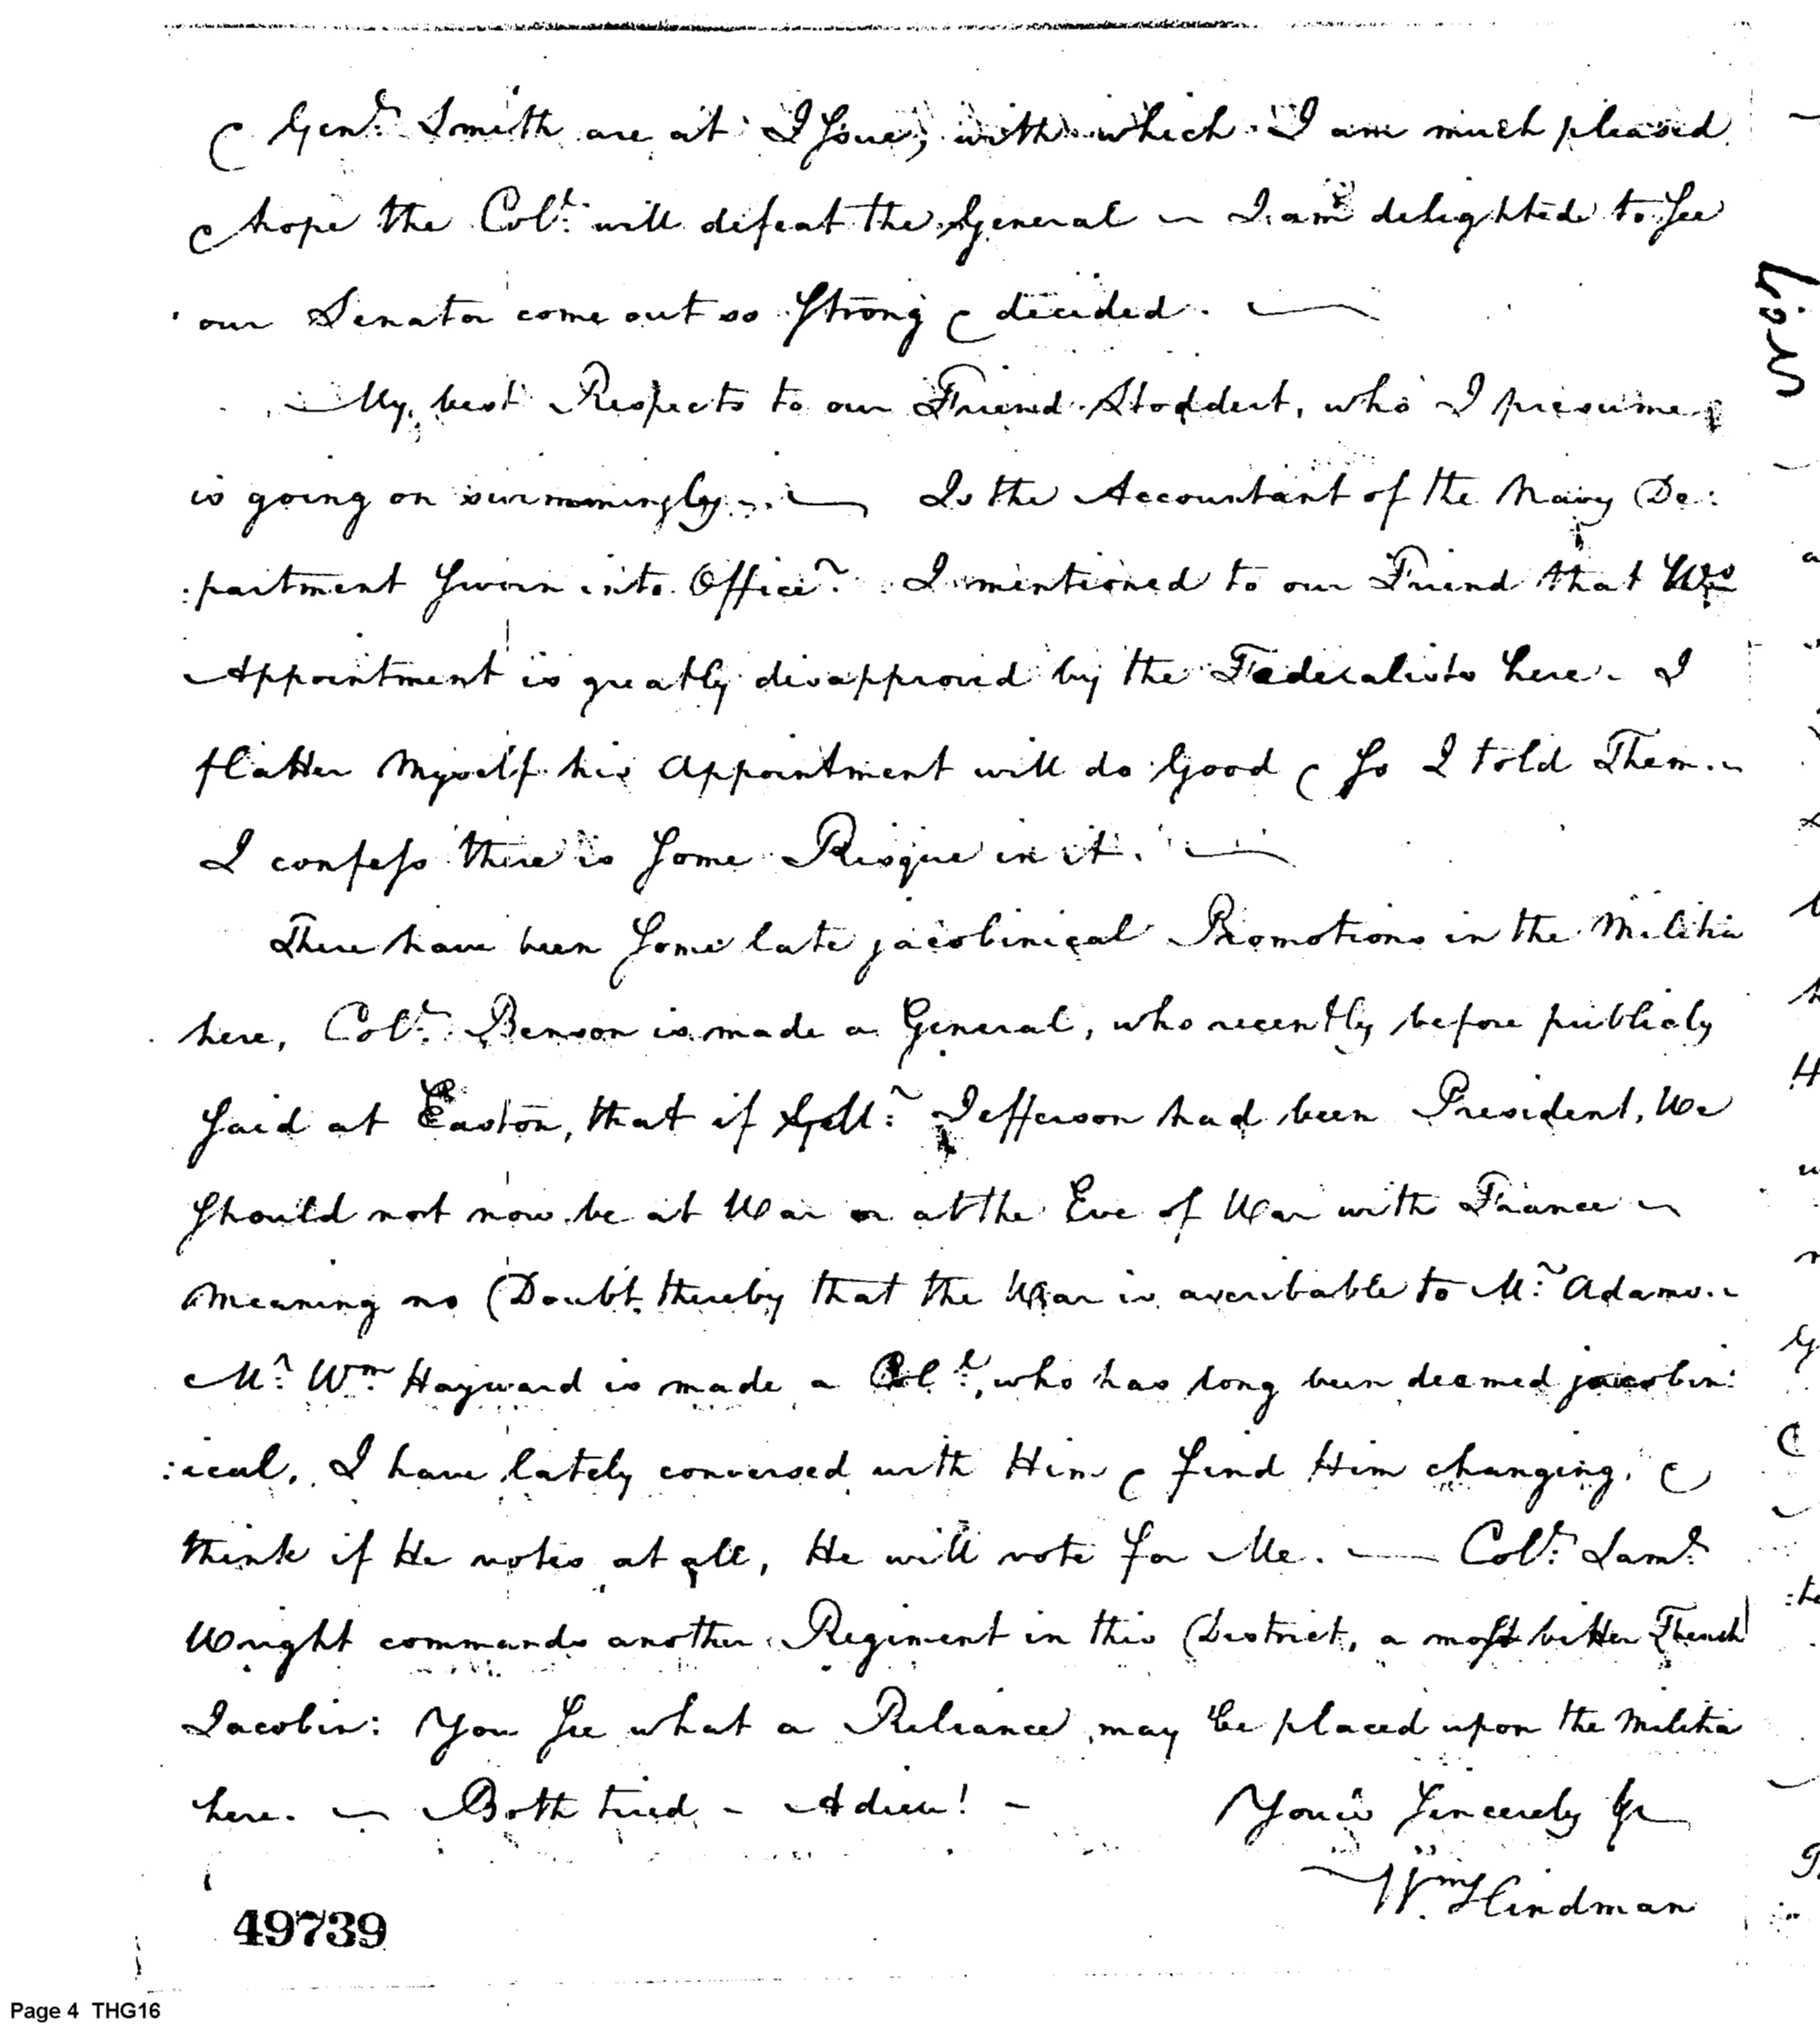 & Genl. Smith are at Issue, with which I am much pleased
& hope the Coll. will defeat the General ~ I am delighted to see
our Senator come out so strong & decided. —
My best Respects to our Friend Stoddert, who I presume
is going on swimmingly. — Is the Accountant of the Navy De:
:partment sworn into Office? I mentioned to our Friend that
Appointment is greatly disapproved by the Federalists here. I
flatter Myself his Appointment will do Good & so I told Them. ~
I confess there is some Risque in it. —
There have been some late jacobinical Promotions in the Militia
here, Coll. Benson is made a General, who recently before publicly
said at Easton, that if Jefferson had been President, We
should not now be at War or at the Eve of War with France ~
meaning no Doubt thereby that the War is ascribable to Mr. Adams. ~
Mr. Wm. Hayward is made a Coll., who has long been deemed jacobin:
:ical, I have lately conversed with Him & find Him changing, &
think if He votes at all, He will vote for Me. — Coll. Saml.
Wright commands another Regiment in this District, a most bitter French
Jacobin: You see what a Reliance may be placed upon the Militia
here. ~ Both tired - Adieu! - Yours Sincerely &c
Wm. Hindman
49739
Page 4 THG16